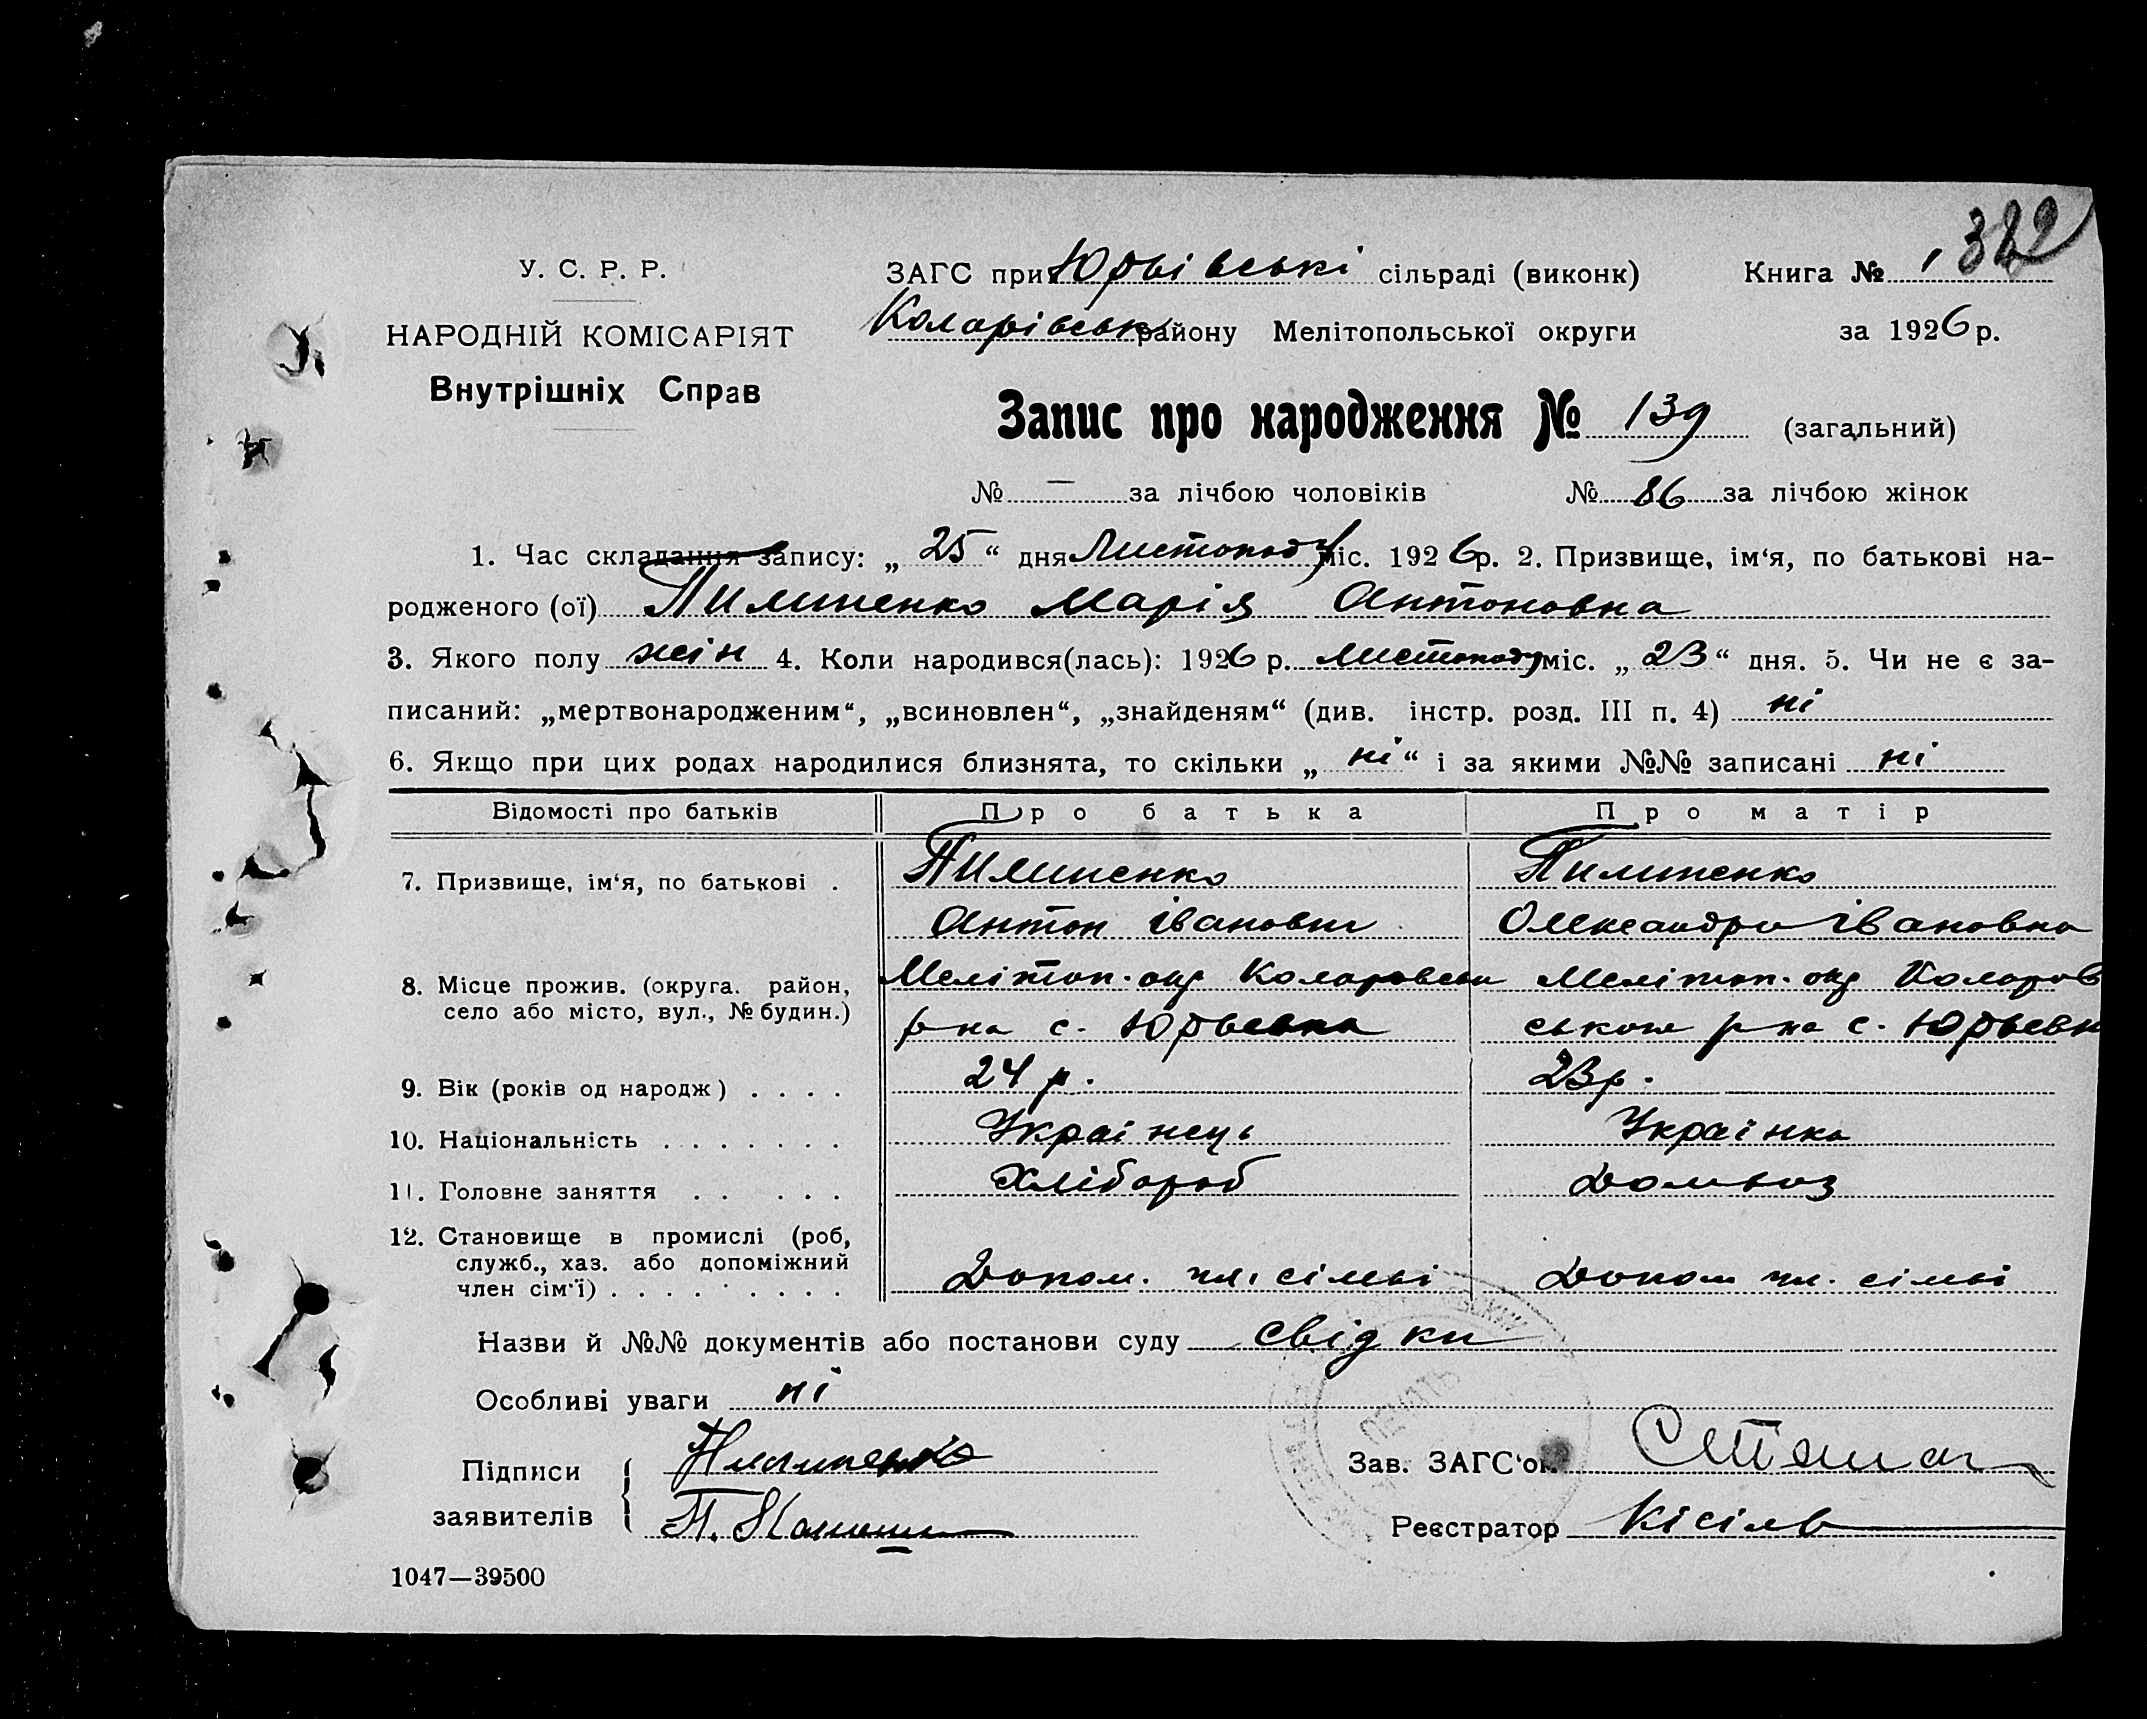 322
У. С. Р. Р.
ЗАГС при Юрьівські сільраді (виконк)
Книга № 1
НАРОДНІЙ КОМІСАРІЯТ
Коларівськ району Мелітопольської округи
за 1926 р.
Внутрішніх Справ
Запис про народження № 139 (загальний)
№ — за лічбою чоловіків № 86 за лічбою жінок
1. Час складання запису: „ 25 “ дня Листопаду міс. 1926 р. 2. Призвище, ім‘я, по батькові на-
родженого (ої) Пилипенко Марія Антоновна
3. Якого полу жін 4. Коли народився(лась): 1926 р. листопаду міс. „ 23 “ дня. 5. Чи не є за-
писаний: „мертвонародженим“, „всиновлен“, „знайденям“ (див. інстр. розд. III п. 4) ні
6. Якщо при цих родах народилися близнята, то скільки „ ні “ і за якими №№ записані ні
Відомості про батьків
Про батька
Про матір
7. Призвище, ім‘я, по батькові .
Пилипенко
Антон Іванович
Пилипенко
Олександра Івановна
8. Місце прожив. (округа. район,
село або місто, вул., № будин.)
Мелітоп. окр Коларовськ
р-на с. Юрьевка
Мелітоп. окр Коларов
ського р-на с. Юрьевк
9. Вік (років од народж) . . . .
24 р.
23 р.
10. Національність . . . . . . .
Українець
Українка
11. Головне заняття . . . . .
Хлібороб
Домхоз
12. Становище в промислі (роб,
служб., хаз. або допоміжний
член сім‘ї) . . . . . . . . .
Допом. чл. сімьі
Допом чл. сімьі
Назви й №№ документів або постанови суду свідки
Особливі уваги ні
Підписи
заявителів
Пилипенко
П.
Зав. ЗАГС‘ом
Реєстратор Кісіль
ПЕЧАТЬ
1047—39500